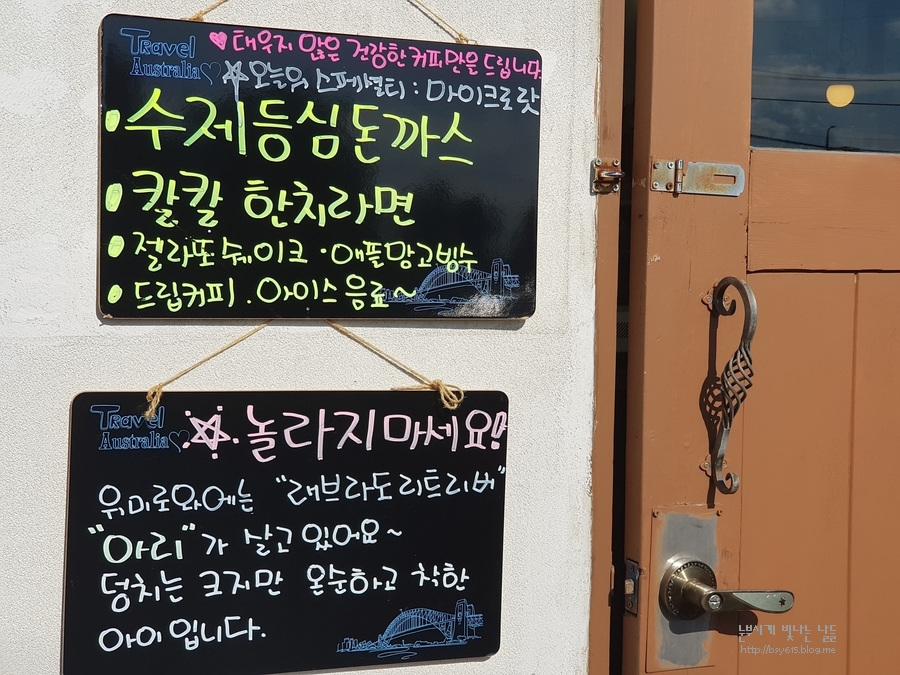 Travel
Australia
♥태우지 않은 건강한 커피만을 드립니다
☆오늘의 스페셜티 : 마이크로랏
• 수제등심돈까스
• 칼칼 한치라면
• 젤라또쉐이크 · 애플망고빙수
• 드립커피 . 아이스음료~
Travel
Australia
☆. 놀라지마세요!
위미로와에는 "래브라도리트리버"
"아리"가 살고있어요~
덩치는 크지만 온순하고 착한
아이입니다.
눈부시게 빛나는 날들
http://bsy615.blog.me